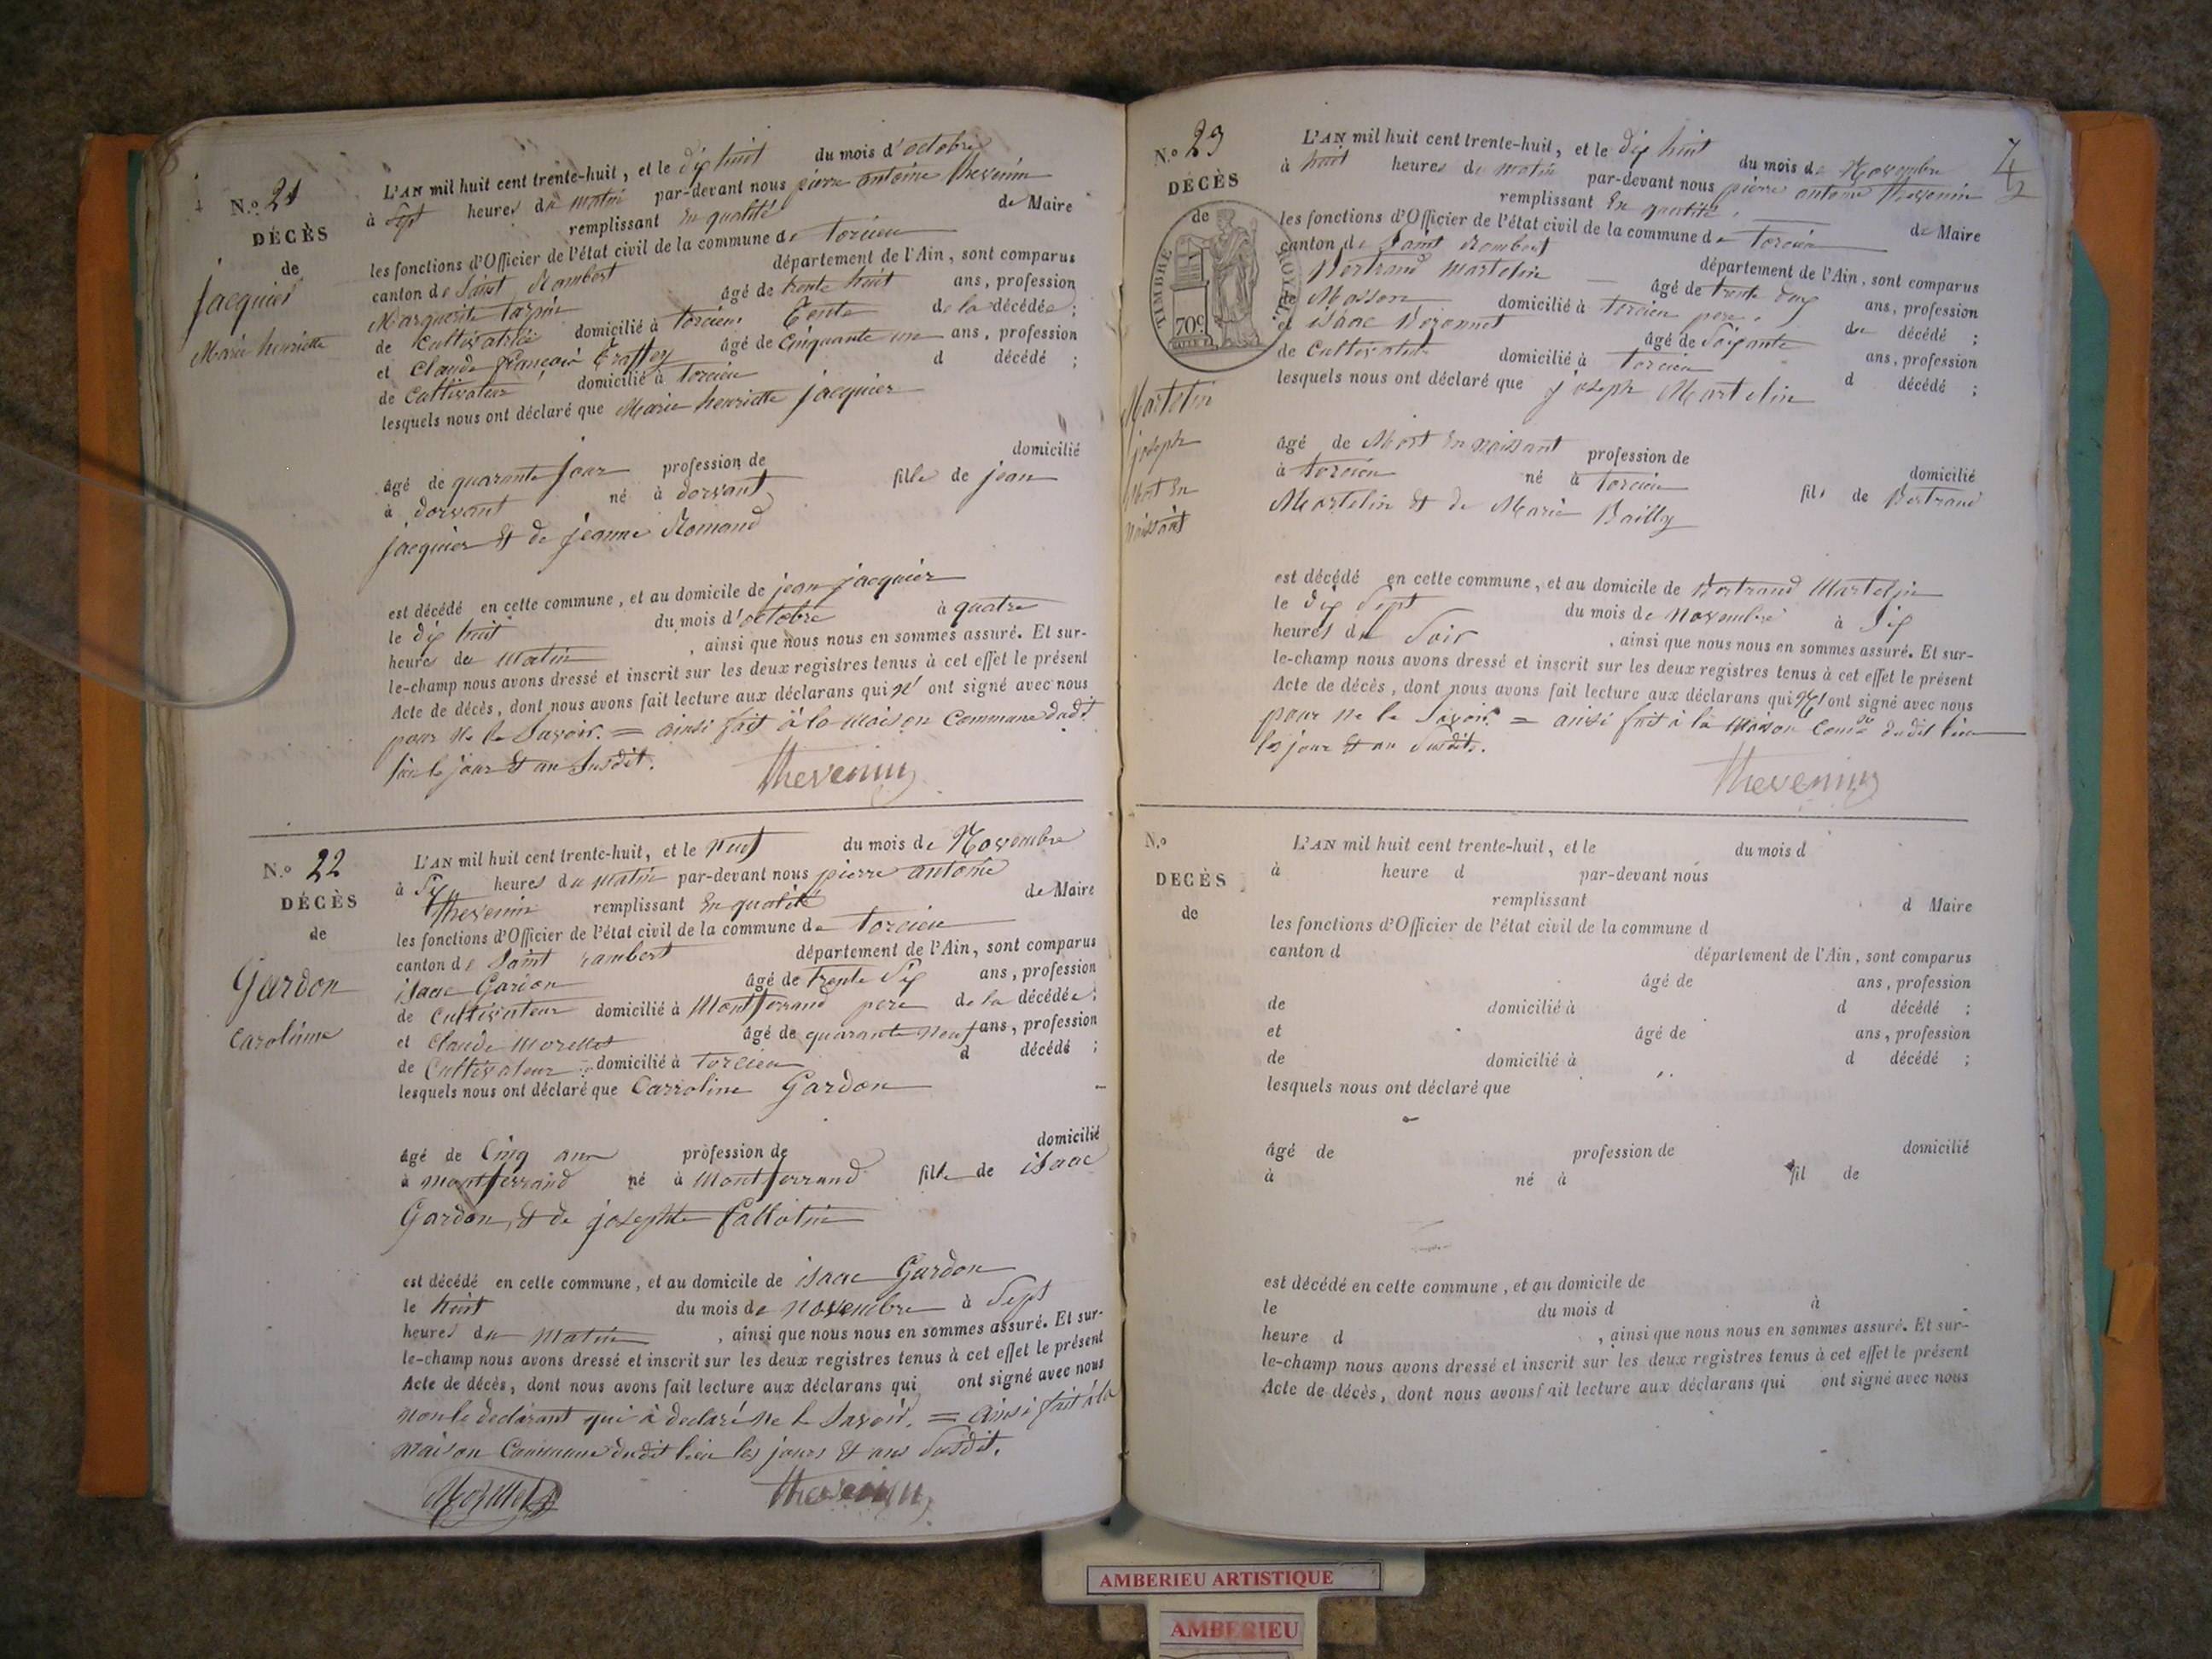 N.º 21
DÉCÈS
de
jacquier
Marie henriette
L'AN mil huit cent trente-huit, et le dix huit du mois d'octobre
à sept heures du matin par-devant nous pierre antoine thevenin
remplissant En qualité de Maire
les fonctions d'Officier de l'état civil de la commune de torcieu
canton de Saint Rambert département de l'Ain, sont comparus
Marguerite tarpin âgé de trente huit ans, profession
de Cultivatrice domicilié à torcieu Tente de la décédée ;
et Claude françois âgé de Cinquante un ans, profession
de Cultivateur domicilié à torcieu d décédé ;
lesquels nous ont déclaré que Marie henriette jacquier
âgé de quarante jour profession de domicilié
à dorvant né à dorvant fille de jean
jacquier & de jeanne Romand
est décédé en cette commune, et au domicile de jean jacquier
le dix huit du mois d'octobre à quatre
heures du Matin, ainsi que nous nous en sommes assuré. Et sur-
le-champ nous avons dressé et inscrit sur les deux registres tenus à cet effet le présent
Acte de décès, dont nous avons fait lecture aux déclarans qui n' ont signé avec nous
pour ne le Savoir. = ainsi fait à la maison Commune dudt.
lieu le jour & an Susdit.
thevenin
N.º 22
DÉCÈS
de
Gardon
Caroline
L'AN mil huit cent trente-huit, et le neuf du mois de Novembre
à Six heures du matin par-devant nous pierre antoine
thevenin remplissant En qualité de Maire
les fonctions d'Officier de l'état civil de la commune de torcieu
canton de Saint rambert département de l'Ain, sont comparus
isaac Gardon âgé de trente Six ans, profession
de Cultivateur domicilié à Montferrand pere de la décédée ;
et Claude Morellet âgé de quarante neuf ans, profession
de Cultivateur domicilié à torcieu d décédé ;
lesquels nous ont déclaré que Carroline Gardon
âgé de Cinq ans profession de domicilié
à montferrand né à Montferrand fille de isaac
Gardon, & de josephte
est décédé en cette commune, et au domicile de isaac Gardon
le huit du mois de novembre à Sept
heures du Matin, ainsi que nous nous en sommes assuré. Et sur-
le-champ nous avons dressé et inscrit sur les deux registres tenus à cet effet le présent
Acte de décès, dont nous avons fait lecture aux déclarans qui ont signé avec nous
non le declarant qui à declaré ne le Savoir. = ainsi fait à la
maison Commune dudit lieu les jours & ans Susdit.
Morellet thevenin
N.º 23
DÉCÈS
de
TIMBRE ROYAL
70c
Martelin
joseph
Mort En
naissant
L'AN mil huit cent trente-huit, et le dix huit du mois de Novembre
à huit heures du matin par-devant nous pierre antoine thevenin
remplissant En qualité de Maire
les fonctions d'Officier de l'état civil de la commune de torcieu
canton de Saint Rambert département de l'Ain, sont comparus
Bertrand Martelin âgé de trente deux ans, profession
de Masson domicilié à torcieu pere du décédé ;
et isaac âgé de Soixante ans, profession
de Cultivateur domicilié à torcieu d décédé ;
lesquels nous ont déclaré que joseph Martelin
âgé de Mort En naissant profession de domicilié
à torcieu né à torcieu fils de Bertrand
Martelin & de Marie Bailly
est décédé en cette commune, et au domicile de Bertrand Martelin
le dix Sept du mois de novembre à Six
heures du Soir, ainsi que nous nous en sommes assuré. Et sur-
le-champ nous avons dressé et inscrit sur les deux registres tenus à cet effet le présent
Acte de décès, dont nous avons fait lecture aux déclarans qui N' ont signé avec nous
pour ne le Savoir. = ainsi fait à la Maison Comne dudit lieu
les jour & an Susdits.
thevenin
N.º
DECÈS
de
L'AN mil huit cent trente-huit, et le du mois d
à heure d par-devant nous
remplissant d Maire
les fonctions d'Officier de l'état civil de la commune d
canton d département de l'Ain, sont comparus
âgé de ans, profession
de domicilié à d décédé ;
et âgé de ans, profession
de domicilié à d décédé ;
lesquels nous ont déclaré que
âgé de profession de domicilié
à né à fil de
est décédé en cette commune, et au domicile de
le du mois d à
heure d , ainsi que nous nous en sommes assuré. Et sur-
le-champ nous avons dressé et inscrit sur les deux registres tenus à cet effet le présent
Acte de décès, dont nous avons fait lecture aux déclarans qui ont signé avec nous
AMBERIEU ARTISTIQUE
AMBERIEU